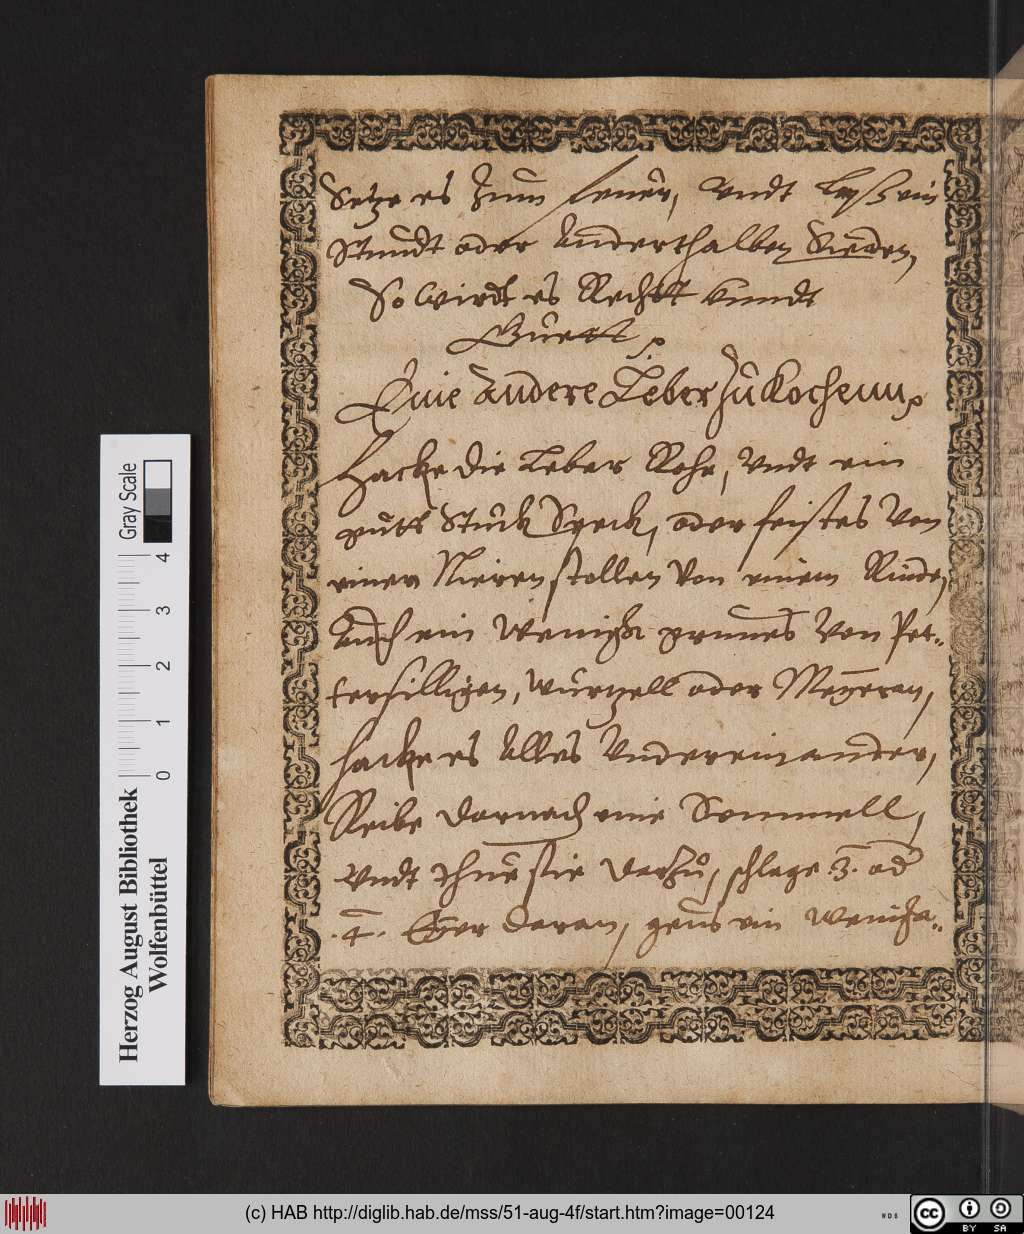 Setze es zum feuer, Vndt laß ein
Stundt oder Anderthalben Sieden,
So wirdt es Rechtt Vnndt
Guett.
Eine Andere Leber zu Kochenn.
Hacke die Leber Rohe, Vndt ein
gutt Stück Speck, oder feistes Von
einen Nieren stollen Von einem Rinde,
Auch ein wenigk grunes Von Pet=
tersilligen, wurtzell oder Meyeran,
hacke es Alles Vndereinander,
Reibe darnach eine Semmell,
Vndt thue sie darzu, schlage .3. od
.4. Eyer daran, geus ein weniga=
Herzog August Bibliothek
Wolfenbüttel
0 1 2 3 4
Gray Scale
(c) HAB http://diglib.hab.de/mss/51-aug-4f/start.htm?image=00124
WDB
cc
BY SA